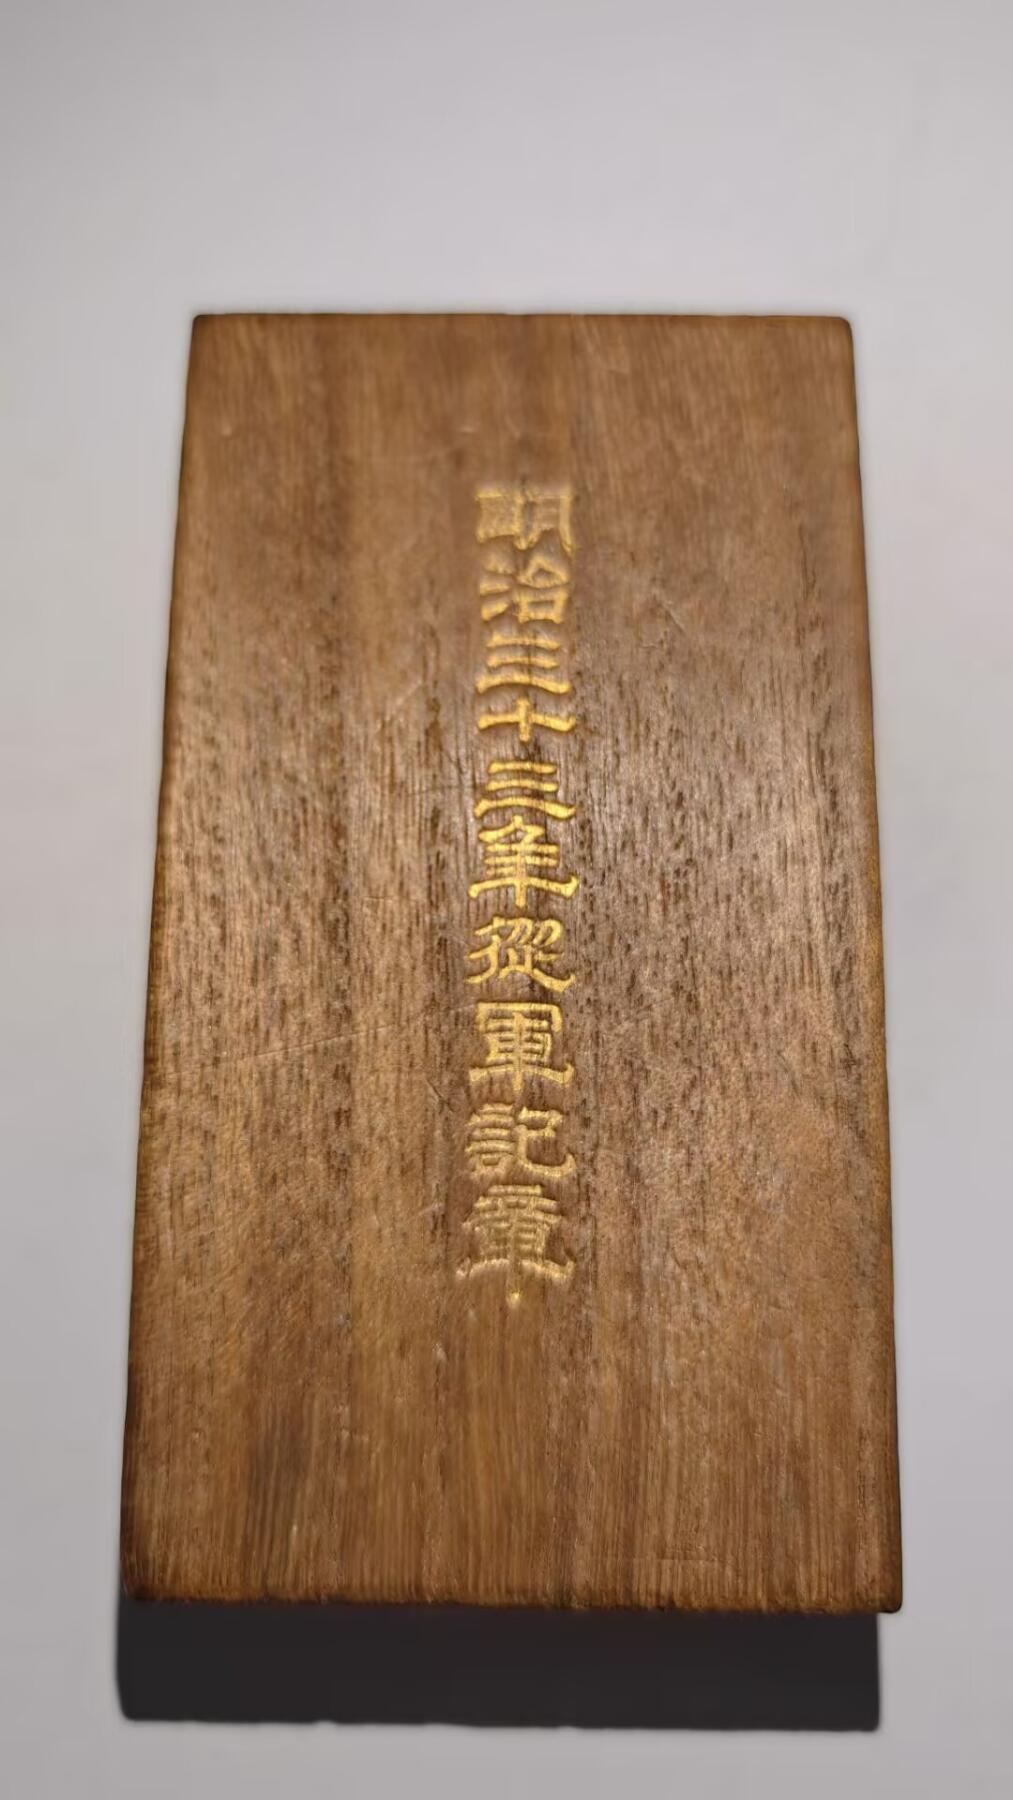 明治三十三年從軍記章